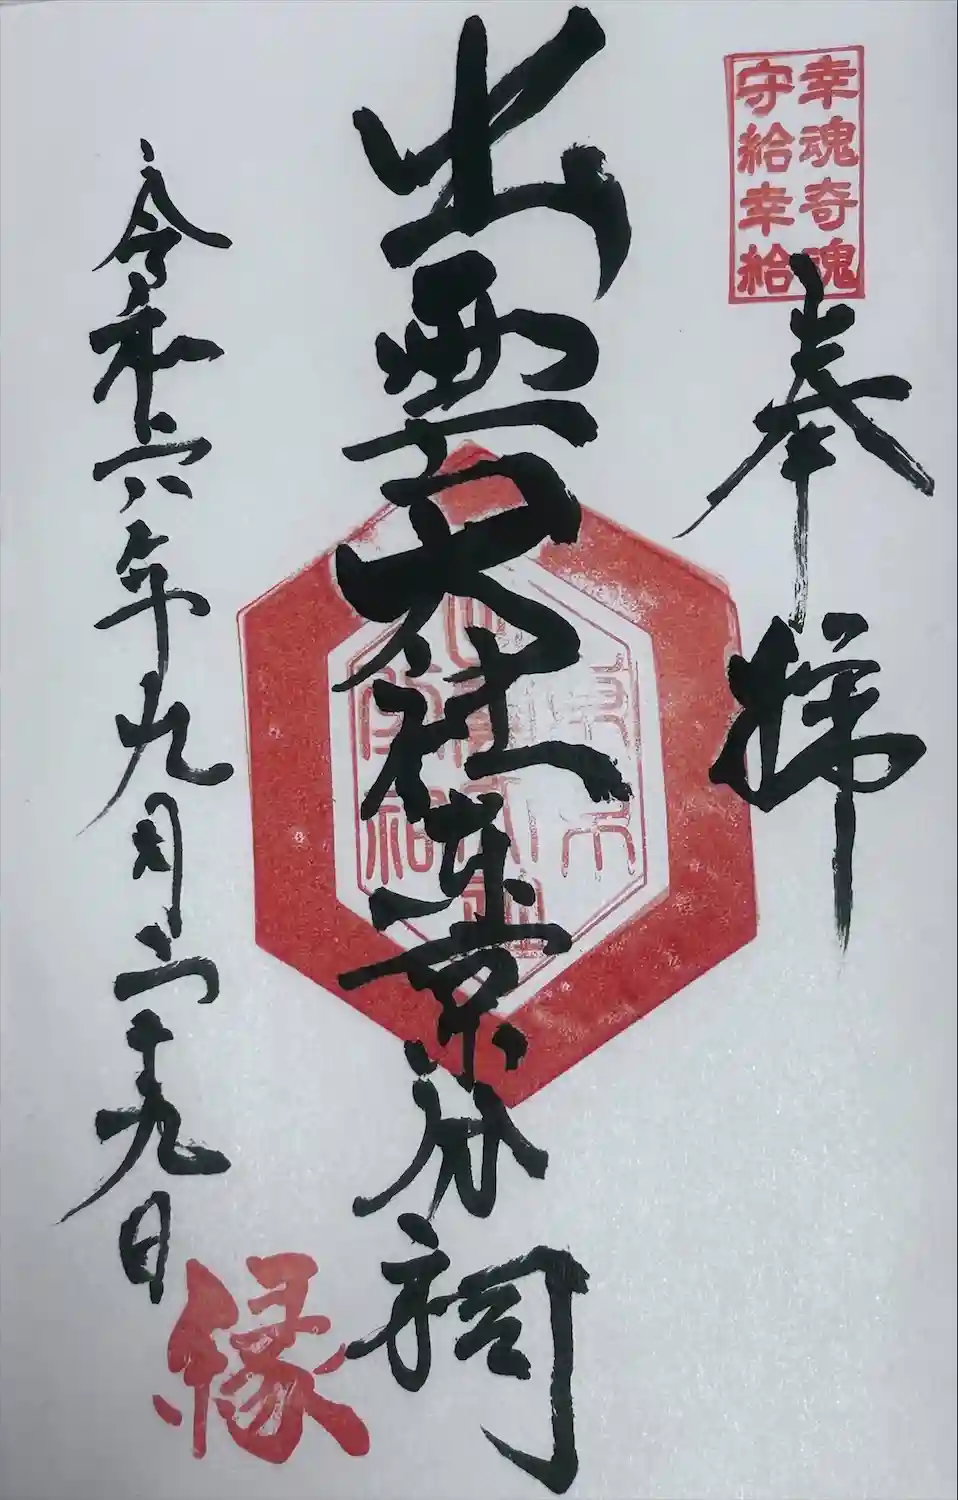 幸魂奇魂
守給幸給
奉拝
出雲大社東京分祠
令和六年九月二十九日
縁